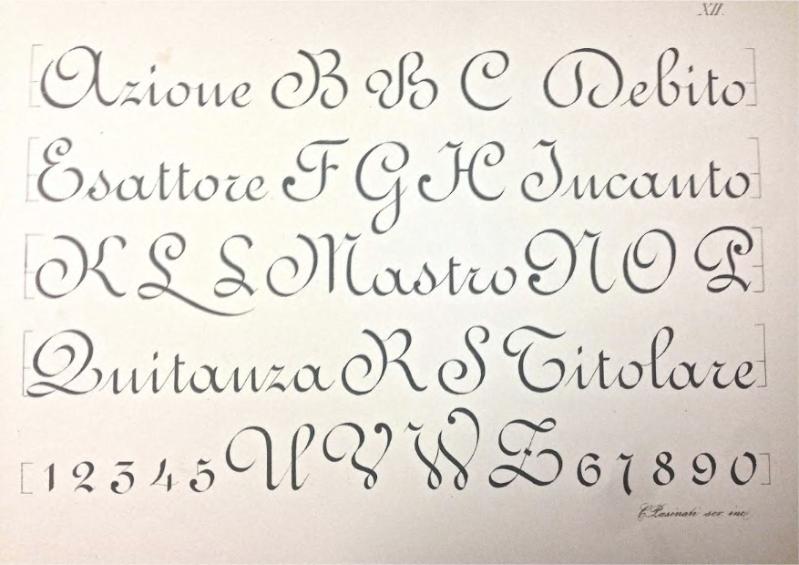 XII.
Azione B B C Debito
Esattore F G H Incanto
K L L Mastro N O P
Quitanza R S Titolare
1 2 3 4 5 U V W Z 6 7 8 9 0